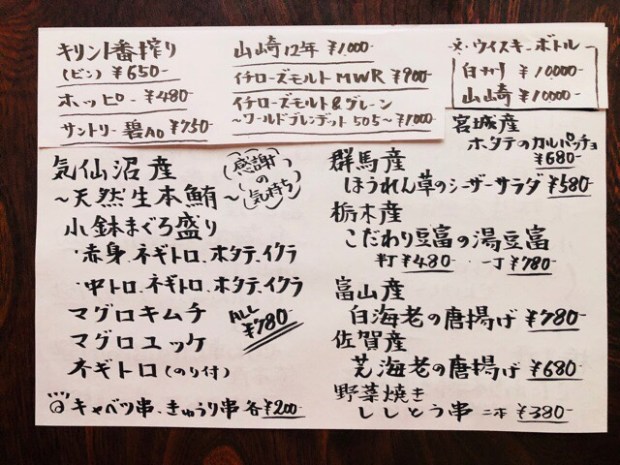 キリン一番搾り
(ビン) ¥650-
ホッピー ¥480-
サントリー碧Ao ¥750-
山崎12年 ¥1,000-
イチローズモルトMWR ¥900-
イチローズモルト&グレーン
~ワールドブレンデット505~¥1,000
ウイスキーボトル
白州 ¥10000-
山崎 ¥10000-
気仙沼産
~天然生本鮪~
感謝の気持ち
小鉢まぐろ盛り
・赤身、ネギトロ、ホタテ、イクラ
・中トロ、ネギトロ、ホタテ、イクラ
マグロキムチ
マグロユッケ
ネギトロ(のり付)
ALL ¥780-
キャベツ串、きゅうり串 各¥200-
宮城産
ホタテのカルパッチョ
¥680-
群馬産
ほうれん草のシーザーサラダ ¥580-
栃木産
こだわり豆富の湯豆富
半丁¥480- 一丁¥780-
富山産
白海老の唐揚げ ¥780-
佐賀産
芝海老の唐揚げ ¥680-
野菜焼き
ししとう串 二本 ¥380-